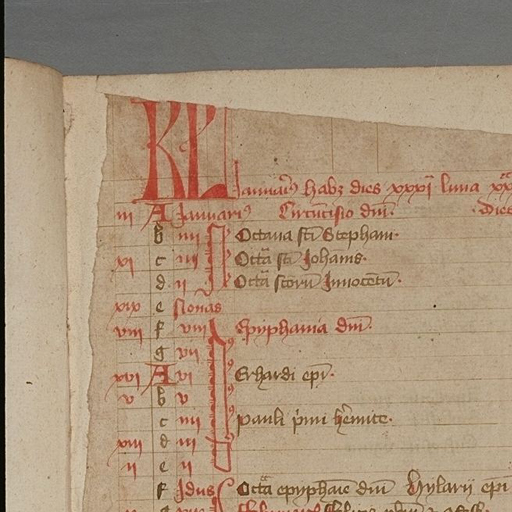 KL
Januariꝰ habꝫ dies xxxi luna xx
iii A Januariꝰ Circūcisio dm̄. dies
b iiii Octaua sc̄i Stephani.
xi c iii Octā sc̄i Johanis.
d ii Octā sc̄orū Innocentū.
xix e Nonas
viii f viii Epyphania dm̄.
g vii
xvi A vi Erhardi epī.
v b v
c iiii pauli p̄mi hēmite.
xiii d iii
ii e ii
f Idus Octā epyphaie dm̄ Hylarii epi